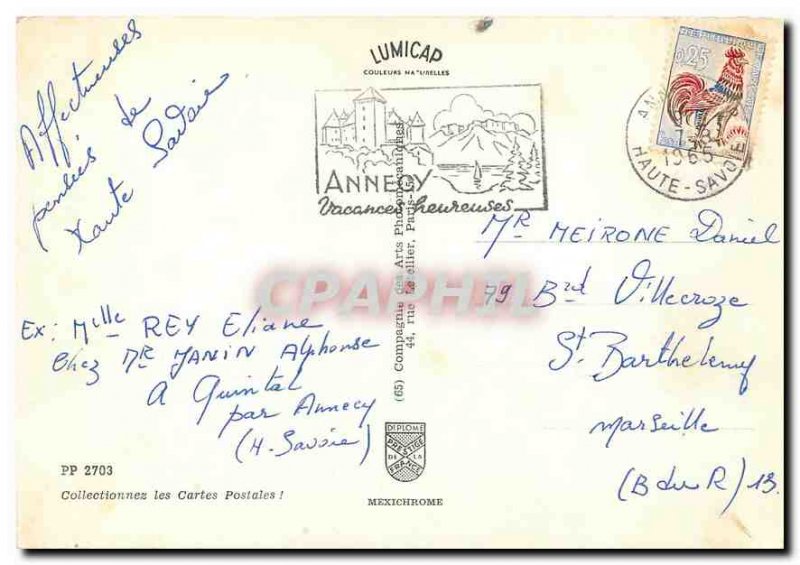 Affectueuses
pensées de
Haute Savoie
LUMICAP
COULEURS NATURELLES
ANNECY
Vacances heureuses
0,25
1965
HAUTE-SAVOIE
Mr MEIRONE Daniel
79 Brd Villecroze
St. Barthelemy
Marseille
(B du R) 13.
Ex: Mlle REY Eliane
Chez Mr JANIN Alphonse
A Quintal
par Annecy
(H. Savoie)
(65) Compagnie des Arts Photomécaniques
44, rue Letellier, Paris-15e
CPAPHIL
DIPLOME
PRESTIGE
DE LA
FRANCE
PP 2703
Collectionnez les Cartes Postales !
MEXICHROME